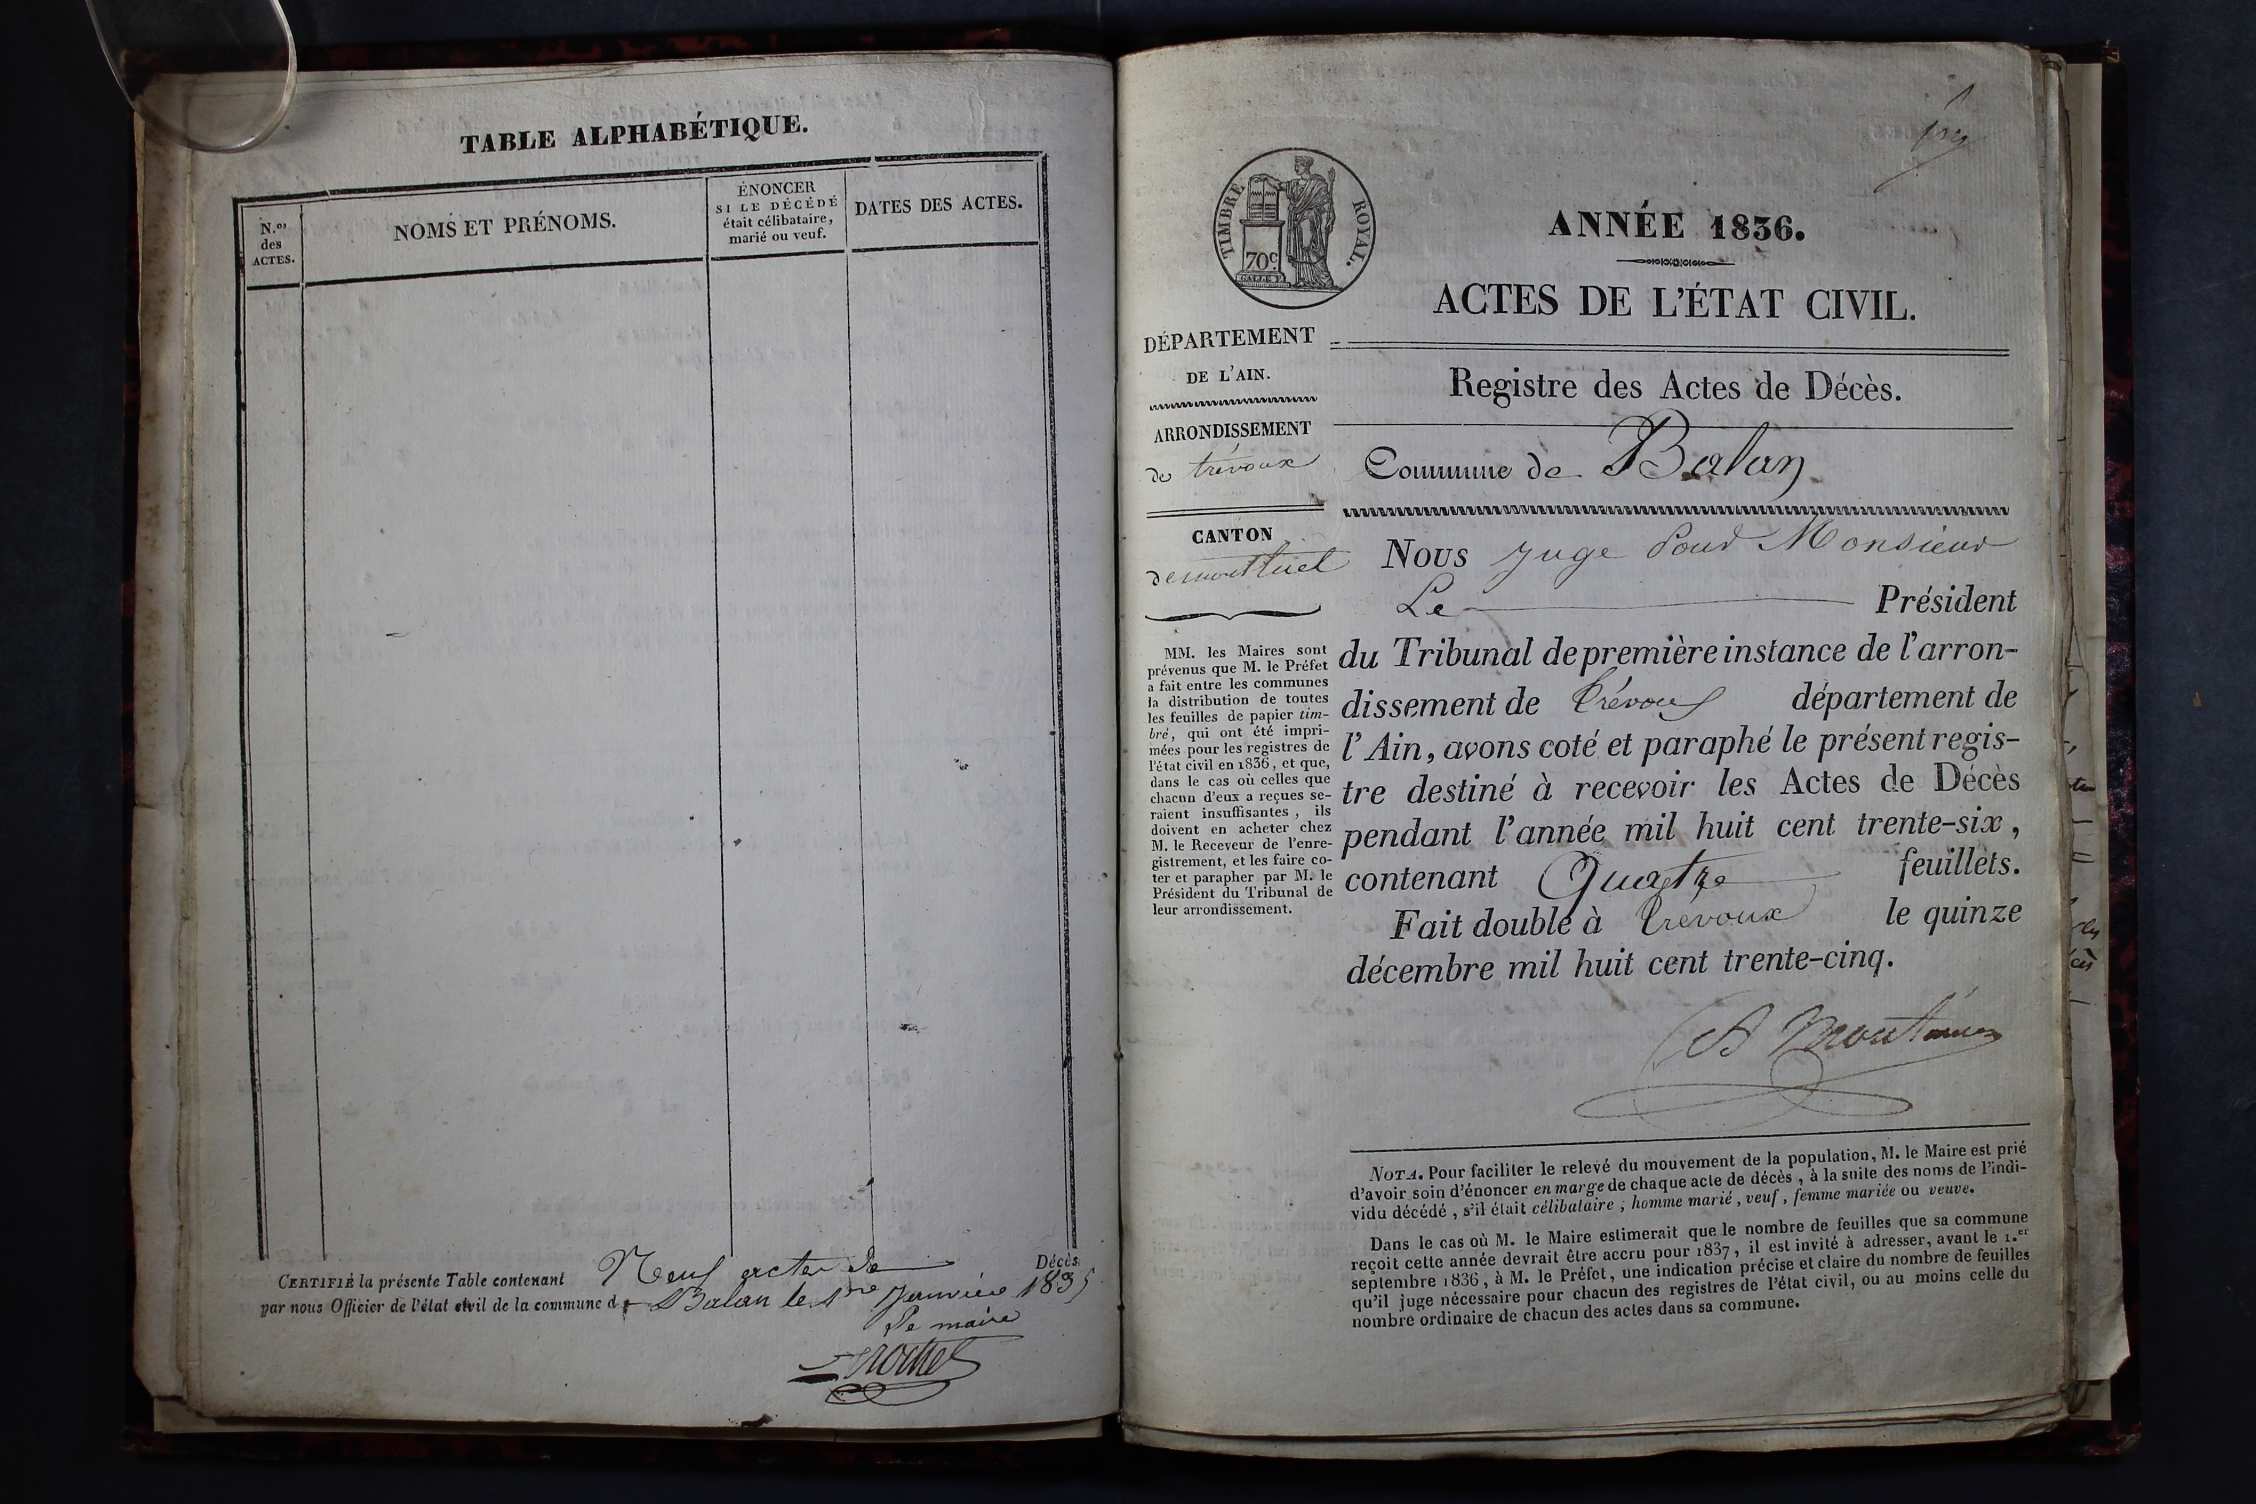 TABLE ALPHABÉTIQUE.
N.os
des
ACTES.
NOMS ET PRÉNOMS.
ÉNONCER
SI LE DÉCÉDÉ
était célibataire,
marié ou veuf.
DATES DES ACTES.
CERTIFIÉ la présente Table contenant Neuf actes de Décès
par nous Officier de l'état civil de la commune de Balan le 1re Janvier 1835
Le maire
TIMBRE ROYAL.
70c
ANNÉE 1836.
ACTES DE L'ÉTAT CIVIL.
DÉPARTEMENT
DE L'AIN.
ARRONDISSEMENT
de trévoux
CANTON
de montluel
MM. les Maires sont
prévenus que M. le Préfet
a fait entre les communes
la distribution de toutes
les feuilles de papier tim-
bré, qui ont été impri-
mées pour les registres de
l'état civil en 1836, et que,
dans le cas où celles que
chacun d'eux a reçues se-
raient insuffisantes, ils
doivent en acheter chez
M. le Receveur de l'enre-
gistrement, et les faire co-
ter et parapher par M. le
Président du Tribunal de
leur arrondissement.
Registre des Actes de Décès.
Commune de Balan
Nous Juge Pour Monsieur
Le Président
du Tribunal de première instance de l'arron-
dissement de Trévoux département de
l'Ain, avons coté et paraphé le présent regis-
tre destiné à recevoir les Actes de Décès
pendant l'année mil huit cent trente-six,
contenant Quatre feuillets.
Fait double à Trévoux le quinze
décembre mil huit cent trente-cinq.
NOTA. Pour faciliter le relevé du mouvement de la population, M. le Maire est prié
d'avoir soin d'énoncer en marge de chaque acte de décès, à la suite des noms de l'indi-
vidu décédé, s'il était célibataire, homme marié, veuf, femme mariée ou veuve.
Dans le cas où M. le Maire estimerait que le nombre de feuilles que sa commune
reçoit cette année devrait être accru pour 1837, il est invité à adresser, avant le 1.er
septembre 1836, à M. le Préfet, une indication précise et claire du nombre de feuilles
qu'il juge nécessaire pour chacun des registres de l'état civil, ou au moins celle du
nombre ordinaire de chacun des actes dans sa commune.